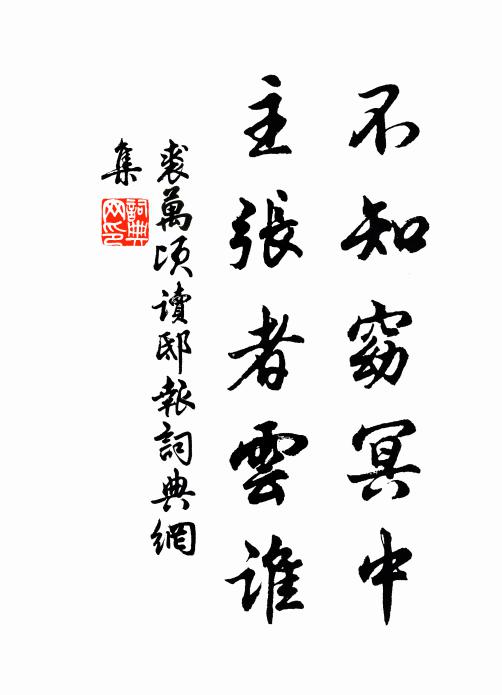 不知窈冥中
主張者雲誰
裘萬頃讀邸報詞典網
集
詞典
网印